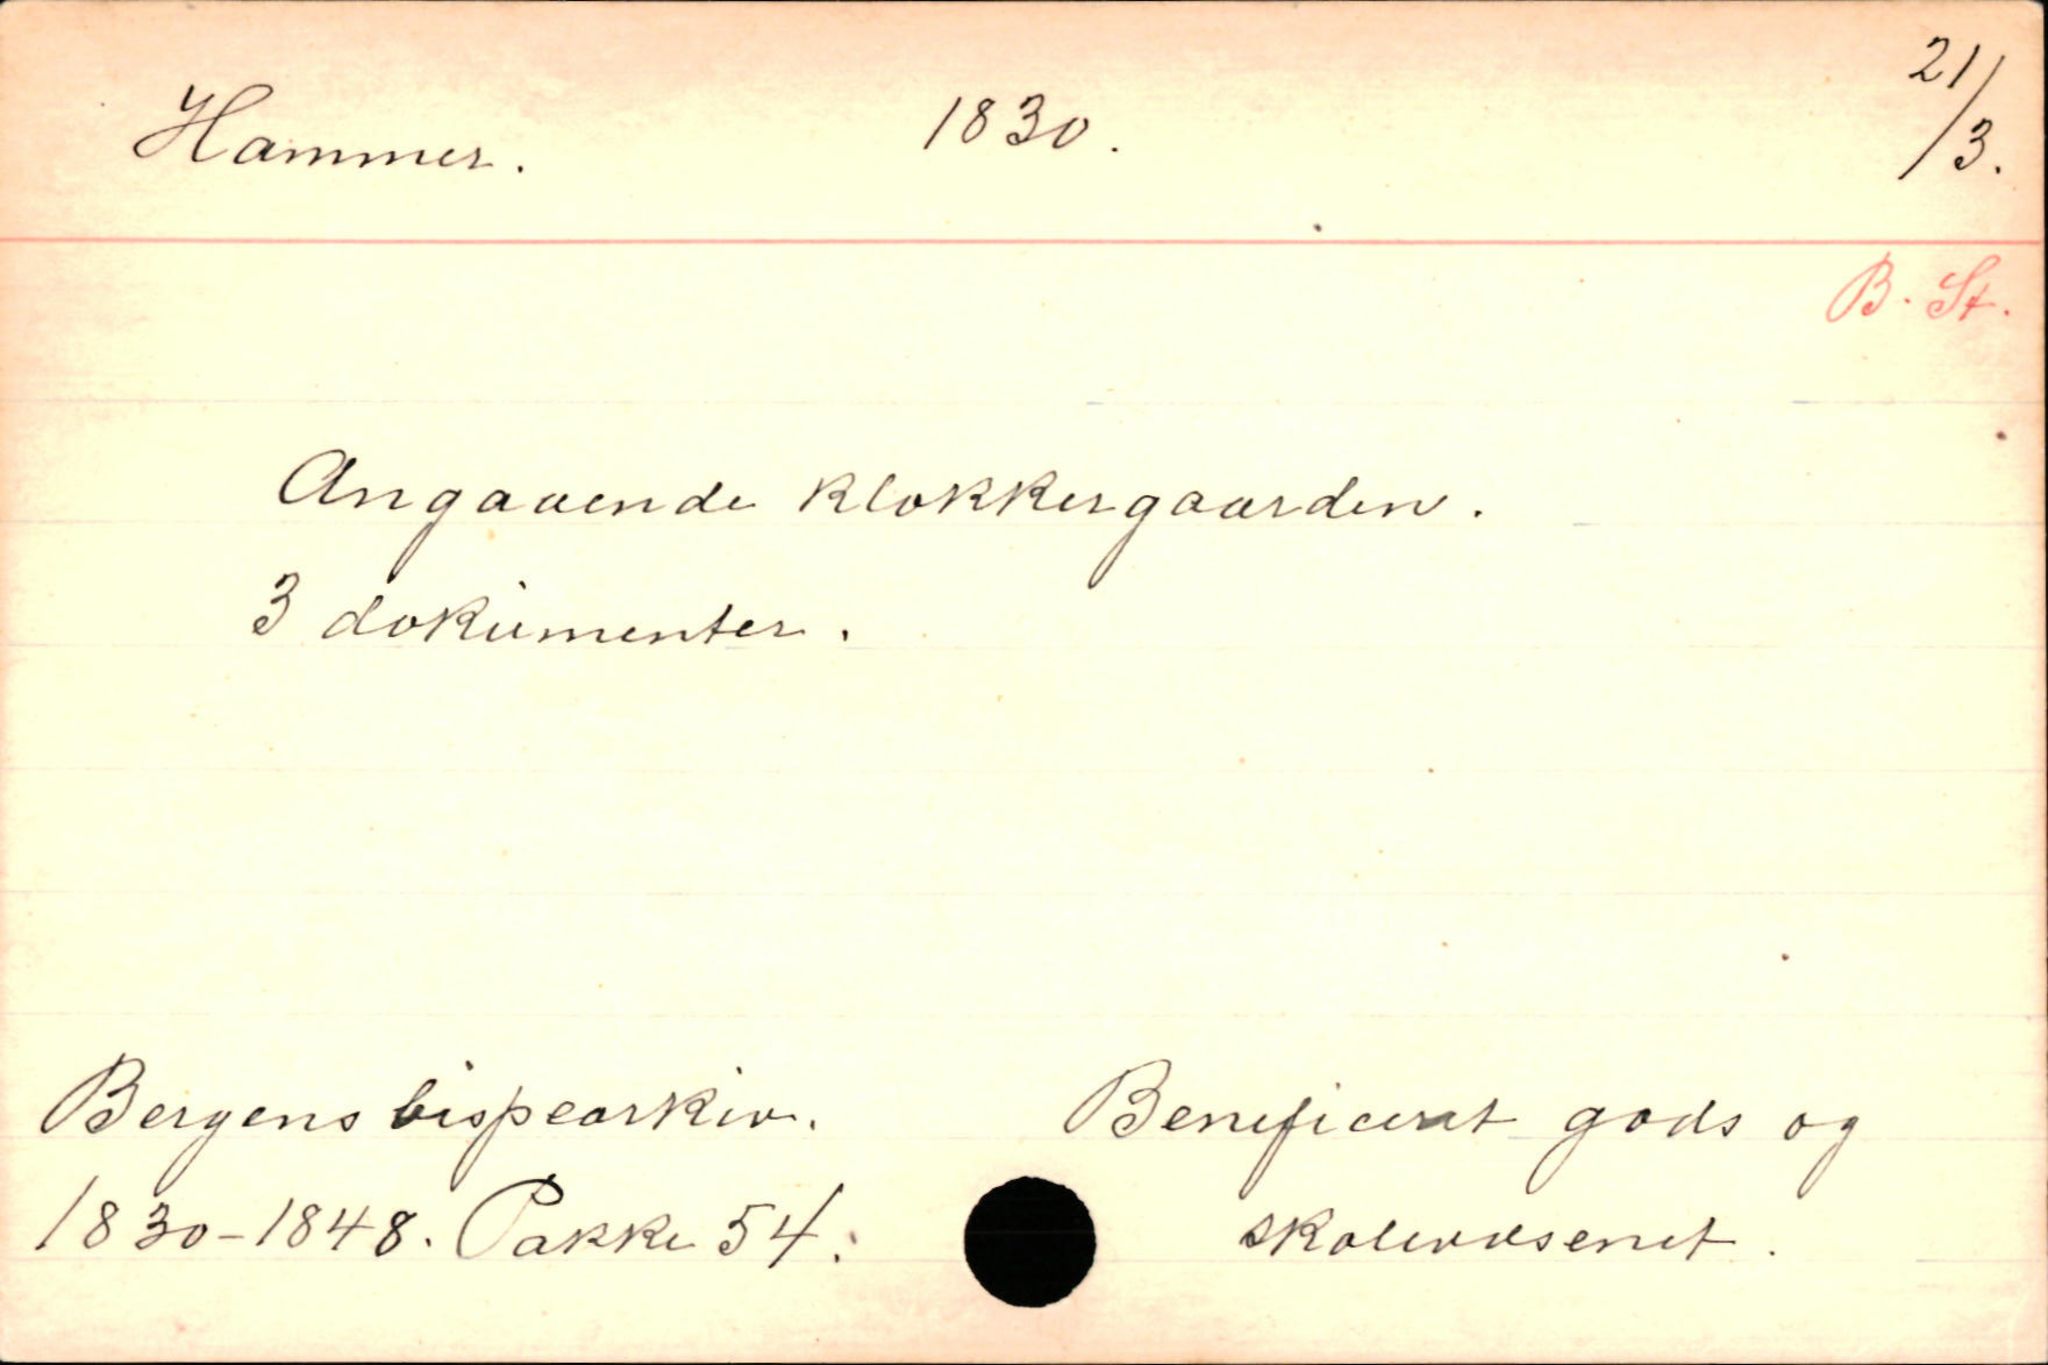 Hammer. 1830. 21/3.
B. St.
Angaaende klokkergaarden.
3 dokumenter.
Bergens bispearkiv. Beneficeret gods og
1830-1848. Pakke 54. skolevæsenet.